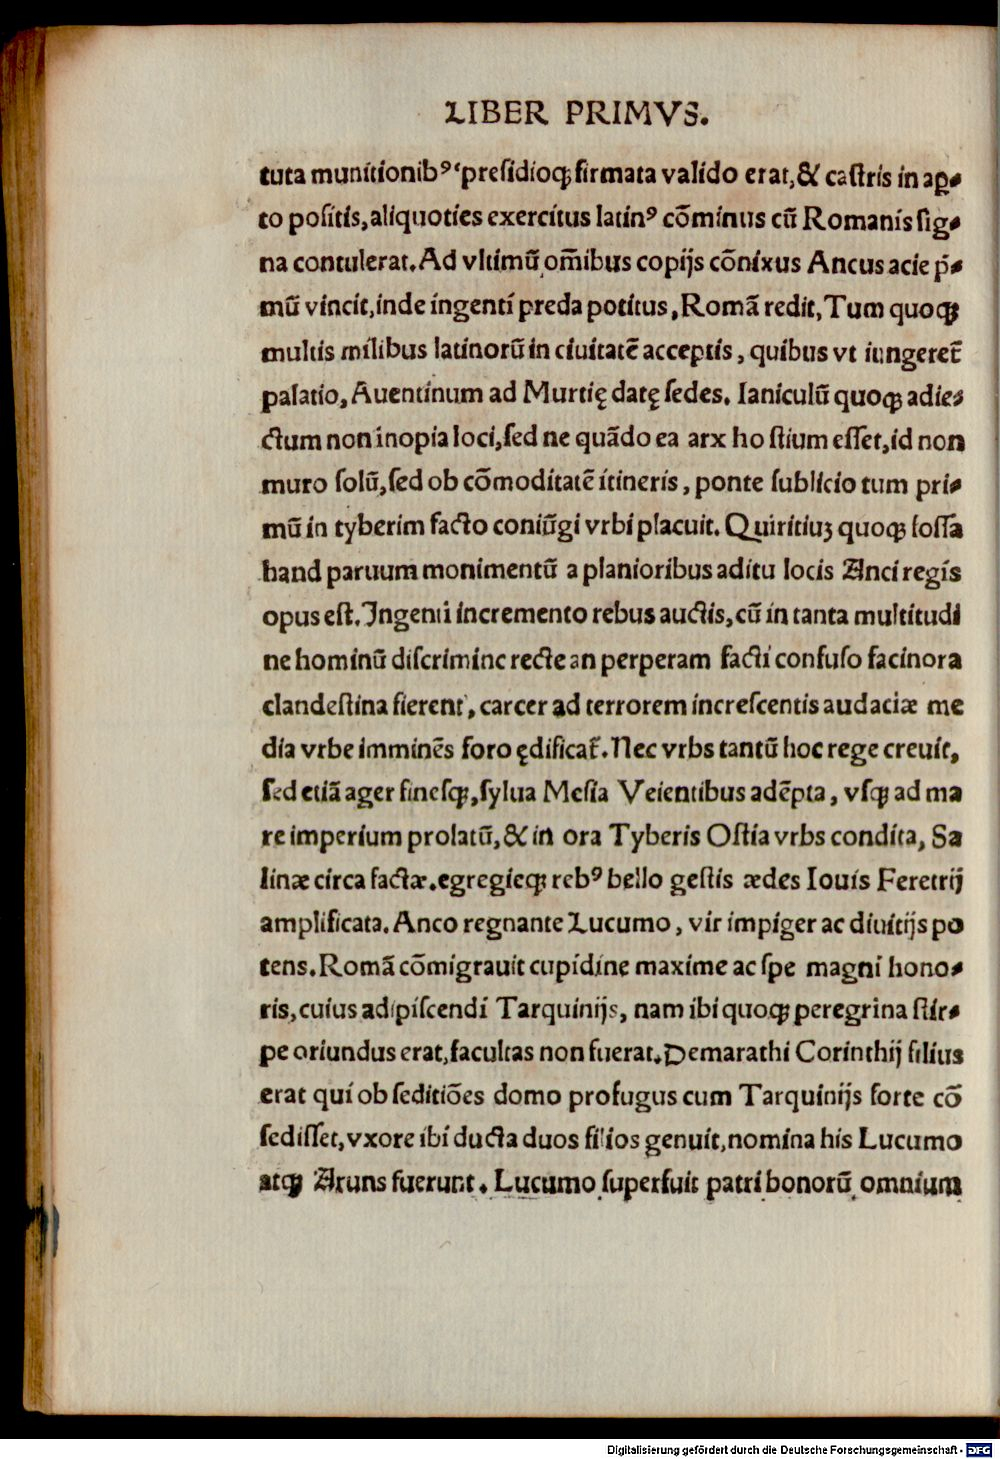 LIBER PRIMVS.
tuta munitionibꝰ p̄ſidioqꝫ firmata valido erat, & caſtris in ap⸗
to poſitis, aliquoties exercitus latinꝰ cōminus cū Romanis ſig⸗
na contulerat. Ad vltimū om̄ibus copijs cōnixus Ancus acie p̄⸗
mū vincit, inde ingenti preda potitus, Romā redit, Tum quoqꝫ
multis milibus latinorū in ciuitatē acceptis, quibus vt iungeret̄
palatio, Auentinum ad Murtię datę ſedes. Ianiculū quoqꝫ adie⸗
ctum non inopia loci, ſed ne quādo ea arx ho ſtium eſſet, id non
muro ſolū, ſed ob cōmoditatē itineris, ponte ſublicio tum pri⸗
mū in tyberim facto coniūgi vrbi placuit. Quiritiuꝫ quoqꝫ foſſa
hand paruum monimentū a planioribus aditu locis Anci regis
opus eſt. Ingenti incremento rebus auctis, cū in tanta multitudi
ne hominū diſcrimine recte an perperam facti confuſo facinora
clandeſtina fierent, carcer ad terrorem increſcentis audaciæ me
dia vrbe imminēs foro ędificat̄. Nec vrbs tantū hoc rege creuit,
ſed etiā ager fineſqꝫ, ſylua Meſia Veientibus adēpta, vſqꝫ ad ma
re imperium prolatū, & in ora Tyberis Oſtia vrbs condita, Sa
linæ circa factæ. egregieqꝫ rebꝰ bello geſtis ædes Iouis Feretrij
amplificata. Anco regnante Lucumo, vir impiger ac diuitijs po
tens. Romā cōmigrauit cupidine maxime ac ſpe magni hono⸗
ris, cuius adipiſcendi Tarquinijs, nam ibi quoqꝫ peregrina ſtir⸗
pe oriundus erat, facultas non fuerat. Demarathi Corinthij filius
erat qui ob ſeditiōes domo profugus cum Tarquinijs forte cō
ſediſſet, vxore ibi ducta duos filios genuit, nomina his Lucumo
atqꝫ Aruns fuerunt. Lucumo ſuperfuit patri bonorū omnium
Digitalisierung gefördert durch die Deutsche Forschungsgemeinschaft - DFG